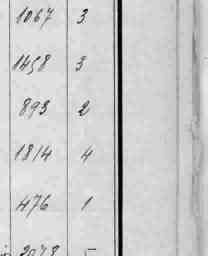 1067 3
1458 3
893 2
1814 4
476 1